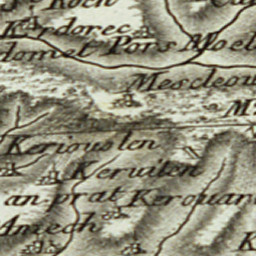 Roch
Kerdorec
domet Pors Moel
Mescleou
M
Keriousten
Keruilen
an prat Kerouar
Amech
K